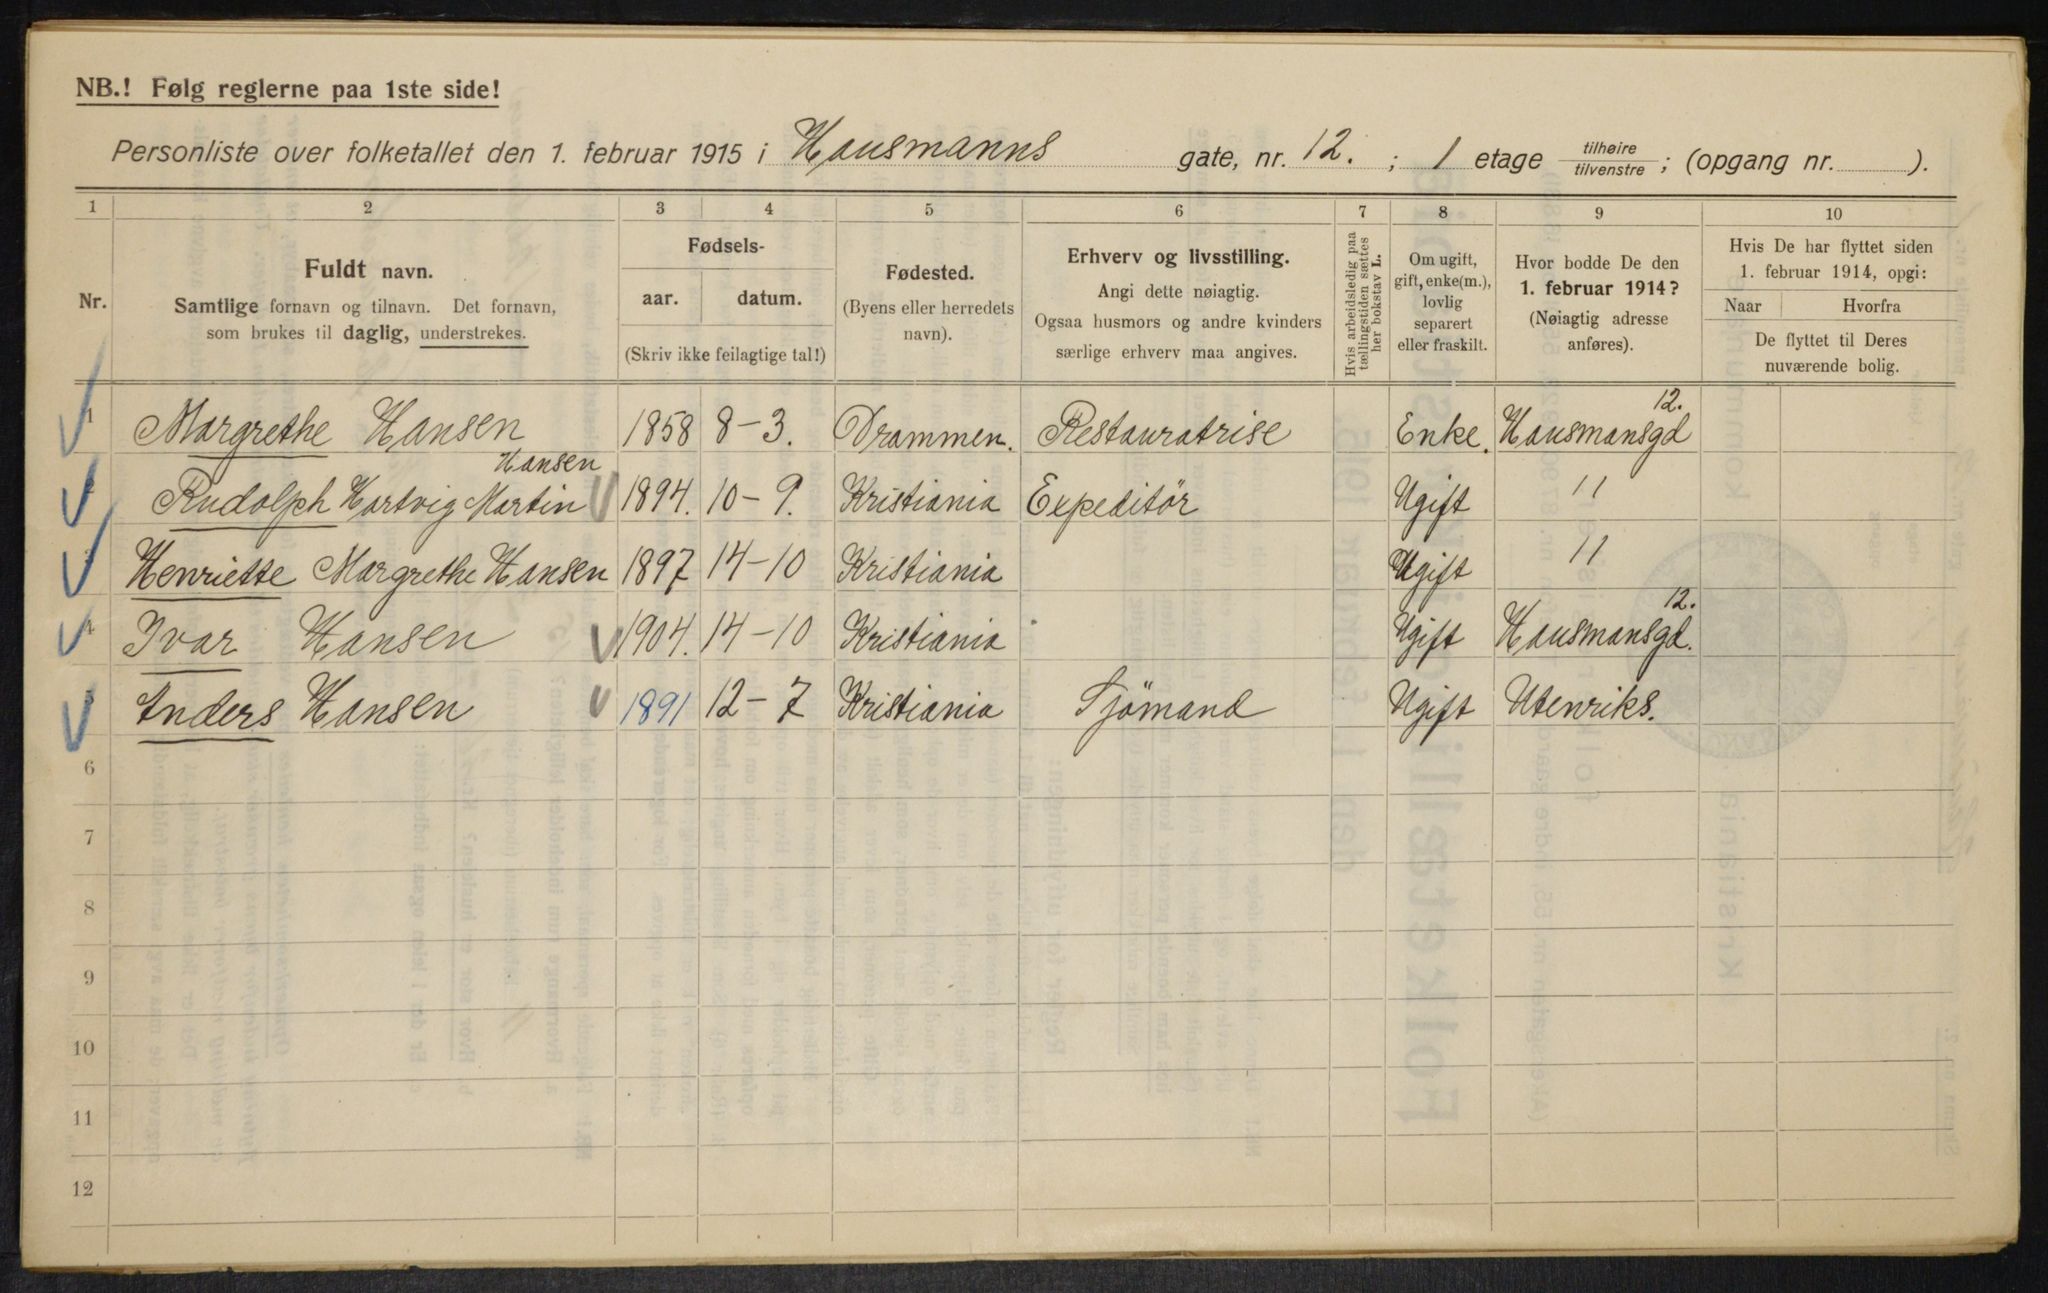 NB.! Følg reglerne paa 1ste side!
Personliste over folketallet den 1. februar 1915 i Hausmanns gate, nr. 12. ; 1 etage tilhøire tilvenstre ; (opgang nr. ).
1 2 3 4 5 6 7 8 9 10
Nr.
Fuldt navn.
Samtlige fornavn og tilnavn. Det fornavn,
som brukes til daglig, understrekes.
Fødsels-
aar. datum.
(Skriv ikke feilagtige tal!)
Fødested.
(Byens eller herredets
navn).
Erhverv og livsstilling.
Angi dette nøiagtig.
Ogsaa husmors og andre kvinders
særlige erhverv maa angives.
Hvis arbeidsledig paa
tællingstiden sættes
her bokstav L.
Om ugift,
gift, enke(m.),
lovlig
separert
eller fraskilt.
Hvor bodde De den
1. februar 1914?
(Nøiagtig adresse
anføres).
Hvis De har flyttet siden
1. februar 1914, opgi:
Naar Hvorfra
De flyttet til Deres
nuværende bolig.
1 Margrethe Hansen 1858 8-3. Drammen. Restauratrise Enke. Hausmansgd 12.
2 Rudolph Hartvig Martin Hansen 1894. 10-9. Kristiania Expeditör Ugift 11
3 Henriette Margrethe Hansen 1897 14-10 Kristiania Ugift 11
4 Ivar Hansen 1904. 14-10 Kristiania Ugift Hausmansgd. 12.
5 Anders Hansen 1891 12-7 Kristiania Sjömand Ugift Utenriks.
6
7
8
9
10
11
12